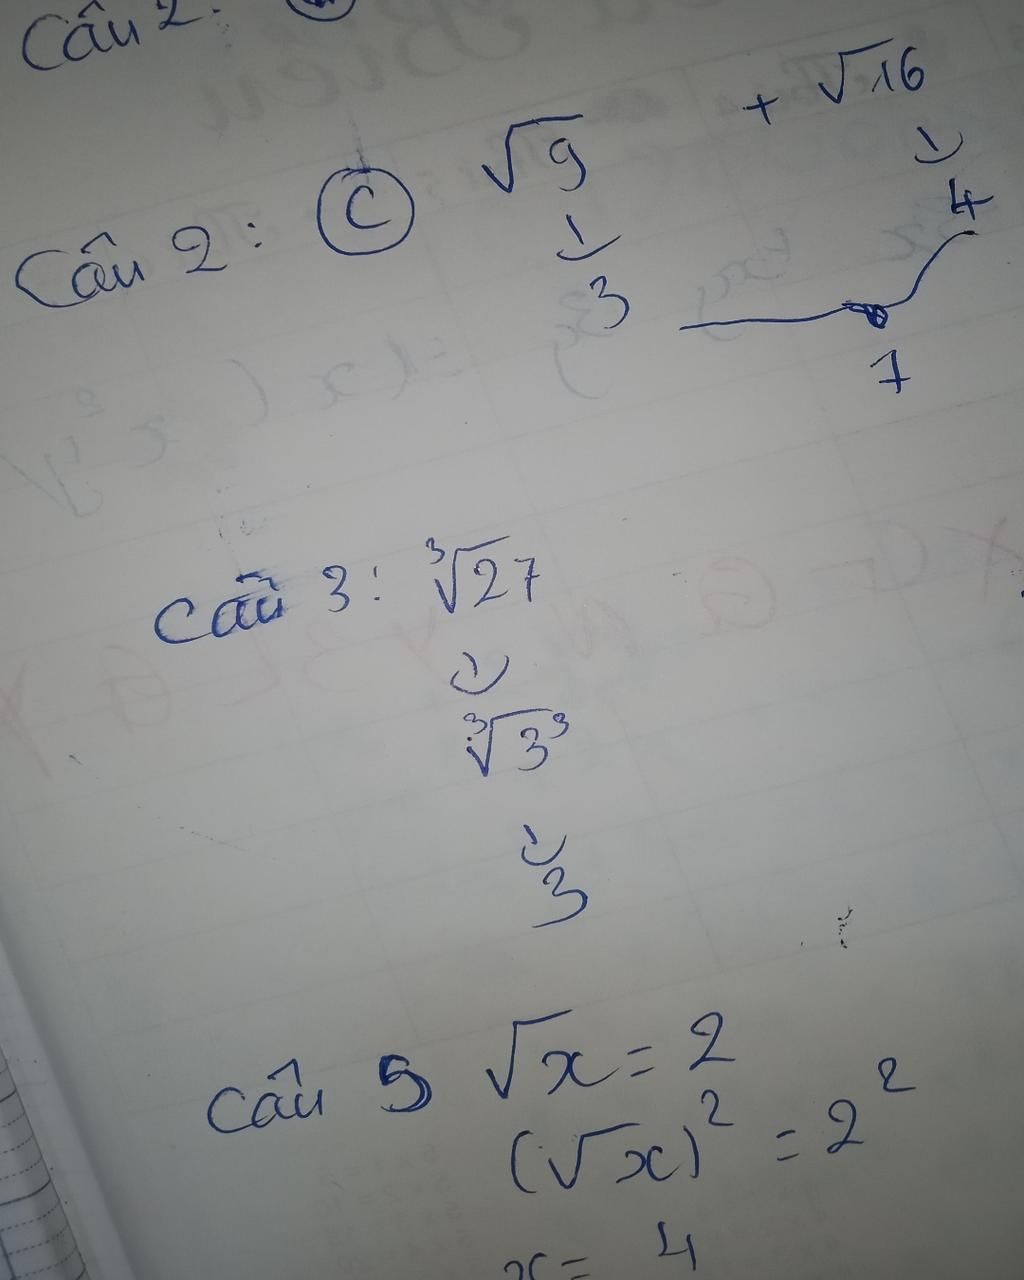 Câu 2:
+ √16
Câu 2: C √9
4
3
7
Câu 3: ∛27
∛3³
3
Câu 5 √x = 2
(√x)² = 2²
x = 4